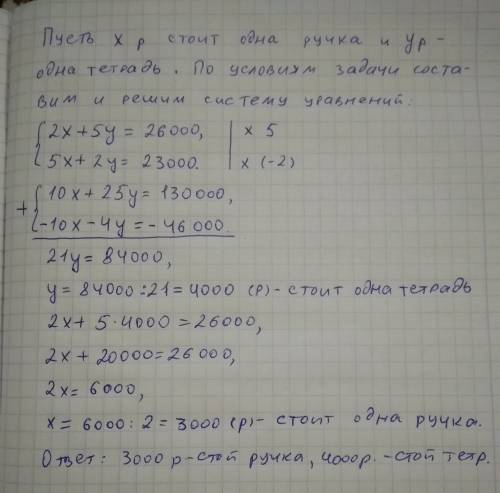 Пусть х р стоит одна ручка и ур -
одна тетрадь. По условиям задачи соста-
вим и решим систему уравнений:
{2x+5y=26000, | x 5
{5x+2y=23000. | x (-2)
+{10x+25y=130000,
{-10x-4y=-46000.
21y=84000,
y=84000:21=4000 (р)- стоит одна тетрадь
2x+5·4000=26000,
2x+20000=26000,
2x=6000,
x=6000:2=3000 (р)- стоит одна ручка.
Ответ: 3000 р-стой ручка, 4000р.-стой тетр.